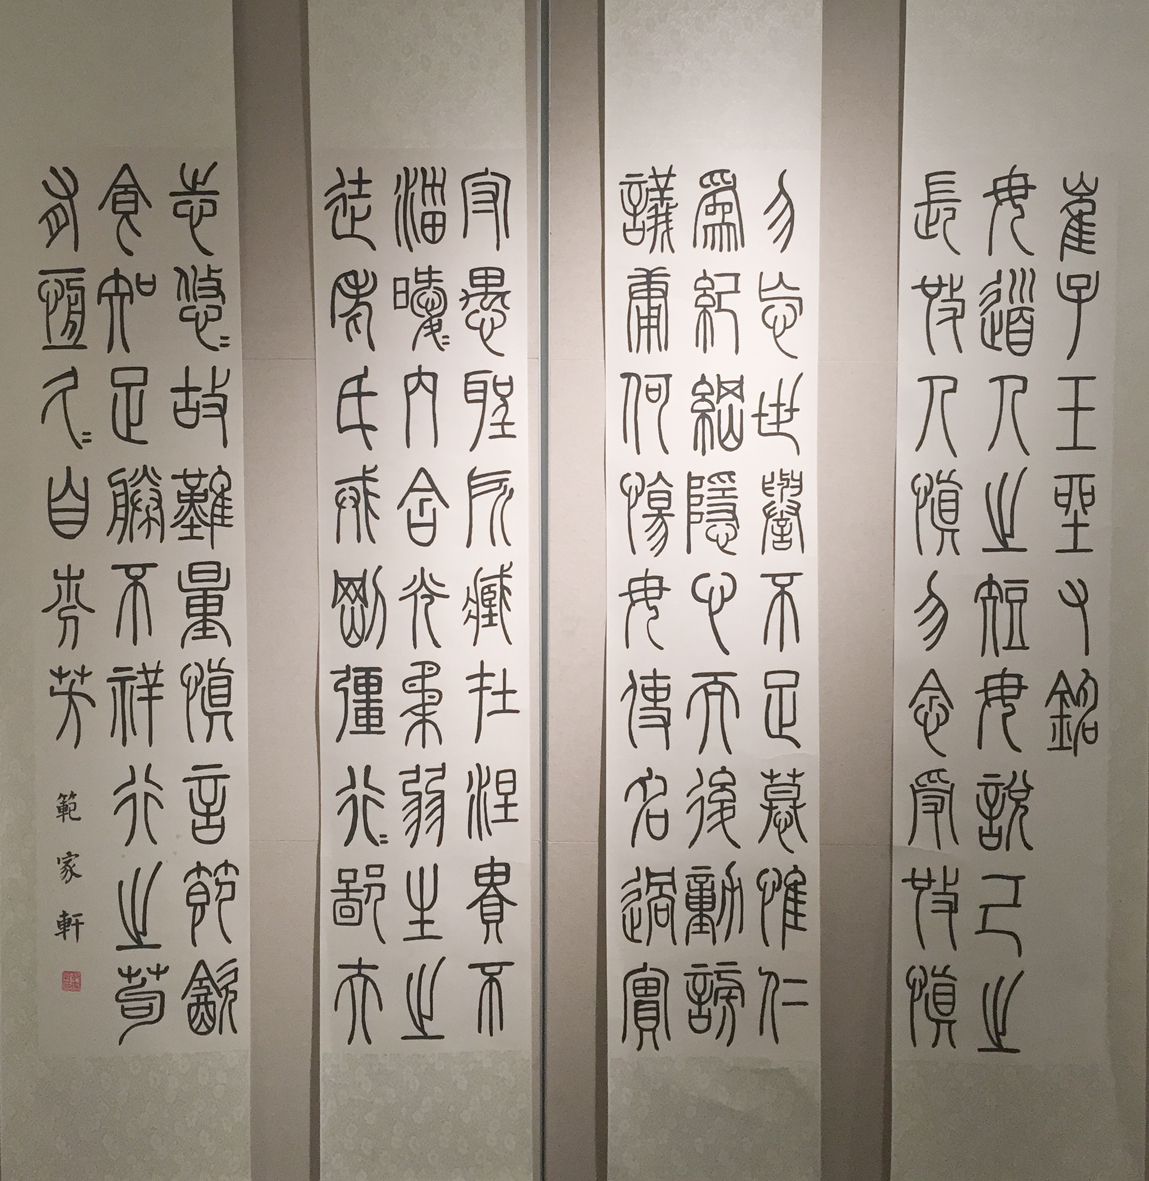 崔子玉座右銘
毋道人之短毋說己之
長施人慎勿念受施慎
勿忘世譽不足慕惟仁
為紀綱隱心而後動謗
議庸何傷毋使名過實
守愚聖所臧在涅貴不
淄曖〻內含光柔弱生之
徒老氏戒剛彊行〻鄙夫
志悠〻故難量慎言節飲
食知足勝不祥行之苟
有恆久〻自芬芳
範家軒